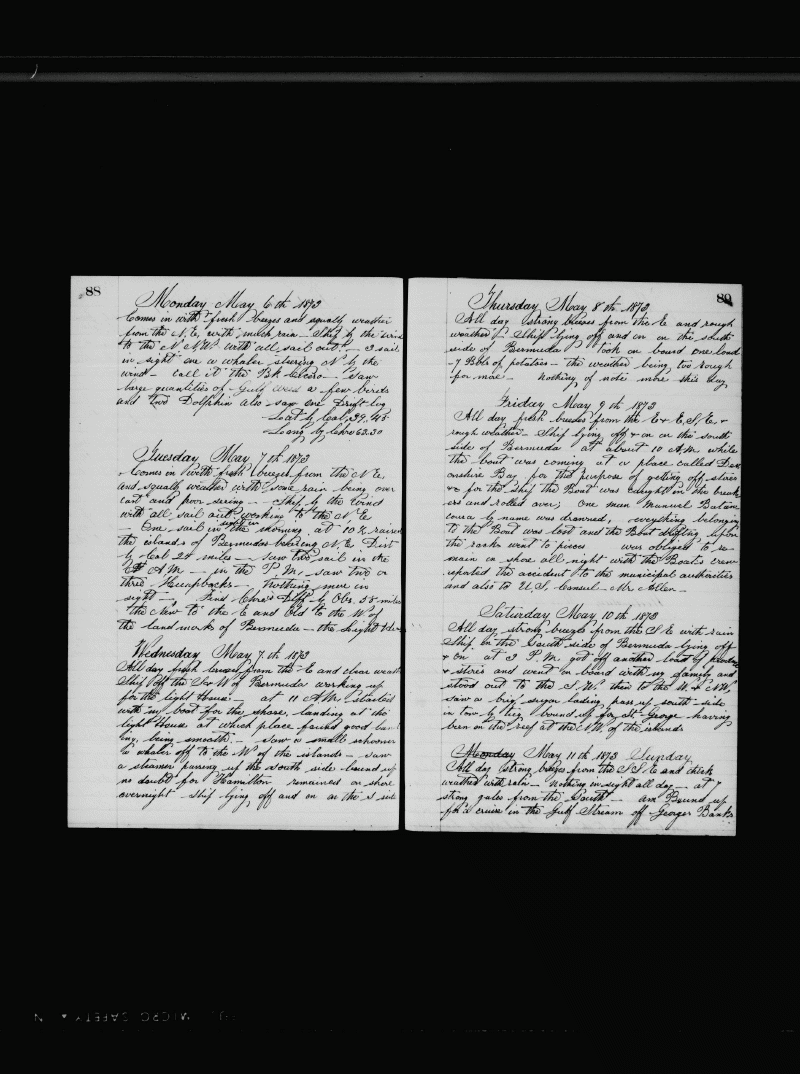 88
Monday May 6th 1873
Comes in with fresh breezes and squally weather
from the N.E. with much rain - Ship by the wind
to the N NW with all sail out - 3 sail
in sight one a whaler steering N by the
wind - call it the Bk Cicero - Saw
large quantities of Gulf weed a few birds
and two Dolphin also saw one Drift log
Lat by Cal, 29,45
Long by Chro 62.30
Tuesday May 7th 1873
Comes in with fresh breezes from the N.E.
and squally weather with some rain being over
cast and poor seeing - Ship by the Wind
with all sail out working to the N.E.
- One sail in sight in the morning at 10 1/2 raised
the islands of Bermudas bearing N.E. Dist
by Cal 24 miles - saw two sail in the
A.M. - in the P.M. saw two or
three Humpbacks - Nothing more in
sight - find Chro's Diff by Obs. 58 miles
the New to the E and Old to the W of
the land mark of Bermuda - the
Wednesday May 7.th 1873
All day fresh breezes from the E and clear weath
Ship off the S & W of Bermuda working up
for the light House - at 11 A.M. started
with my boat for the shore, landing at the
light House at which place found good
ing, being smooth - saw a small schooner
a whaler off to the W of the islands - saw
a steamer passing up the south side bound up
no doubt for Hamilton remained on shore
overnight - ship lying off and on on the S side
89
Thursday May 8th 1873
All day strong breezes from the E and rough
weather - Ship lying off and on on the south
side of Bermuda took on board one load
- 7 Bbls of potatoes - the weather being too rough
for more - nothing of note more this day
Friday May 9th 1873
All day fresh breezes from the E & E,S,E, &
rough weather - Ship lying off & on on the south
side of Bermuda at about 10 A.M. while
the boat was coming at a place called Dev
onshire Bay for the purpose of getting off stores
&c for the ship the Boat was caught in the break
ers and rolled over, One man Manuel
by name was drowned, everything belonging
to the Boat was lost and the Boat drifting upon
the rocks went to pieces was obliged to re
main on shore all night with the Boats crew
reported the accident to the municipal authorities
and also to U.S. Consul - Mr Allen -
Saturday May 10th 1873
All day strong breezes from the S E with rain
Ship in the South side of Bermuda lying off
& on at 3 P.M. got off another load of
& stores and went on board with my family and
stood out to the S.W. then to the W. & NW.
saw a brig deepen loaden pass up south side
in tow by tug bound up for St George having
been on the reef at the NW of the islands
Monday May 11th 1873 Sunday
All day strong breeze from the S.S.E and thick
weather with rain - Nothing in sight all day - at 7
strong gales from the South - am Bound up
for a cruise in the Gulf Stream off Georges Banks